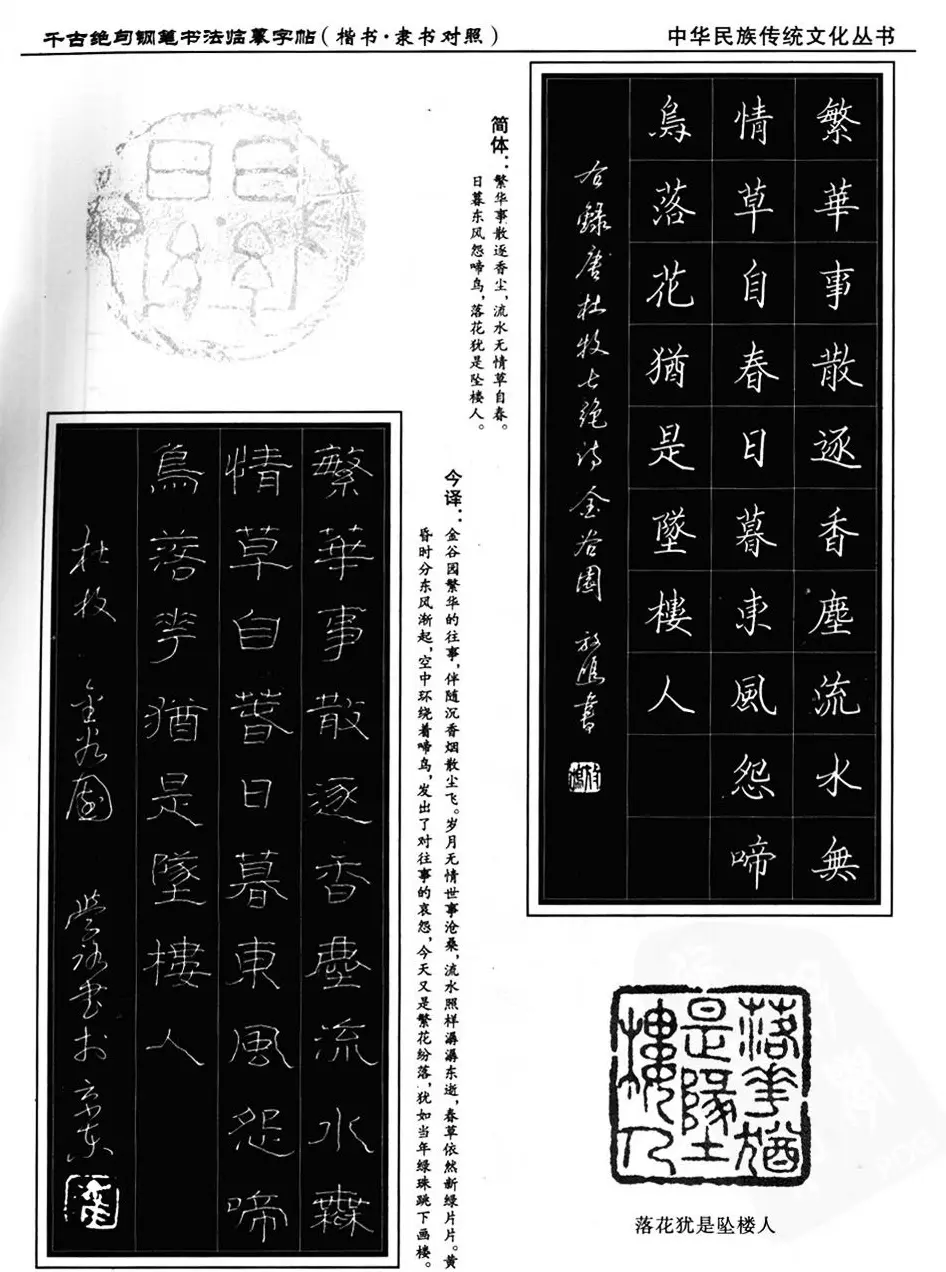 千古绝句钢笔书法临摹字帖(楷书·隶书对照)
中华民族传统文化丛书
繁華事散逐香塵流水無
情草自春日暮東風怨啼
鳥落花猶是墜樓人
右錄唐杜牧七绝诗金谷園
書
简体:繁华事散逐香尘,流水无情草自春。
日暮东风怨啼鸟,落花犹是坠楼人。
今译:金谷园繁华的往事,伴随沉香烟散尘飞。岁月无情世事沧桑,流水照样潺潺东逝,春草依然新绿片片。黄
昏时分东风渐起,空中环绕着啼鸟,发出了对往事的哀怨,今天又是繁花纷落,犹如当年绿珠跳下画楼。
繁華事散逐香塵流水無
情草自春日暮東風怨啼
鳥落花猶是墜樓人
杜牧 金谷園
书于京东
落花猶
是墜
樓人
落花犹是坠楼人